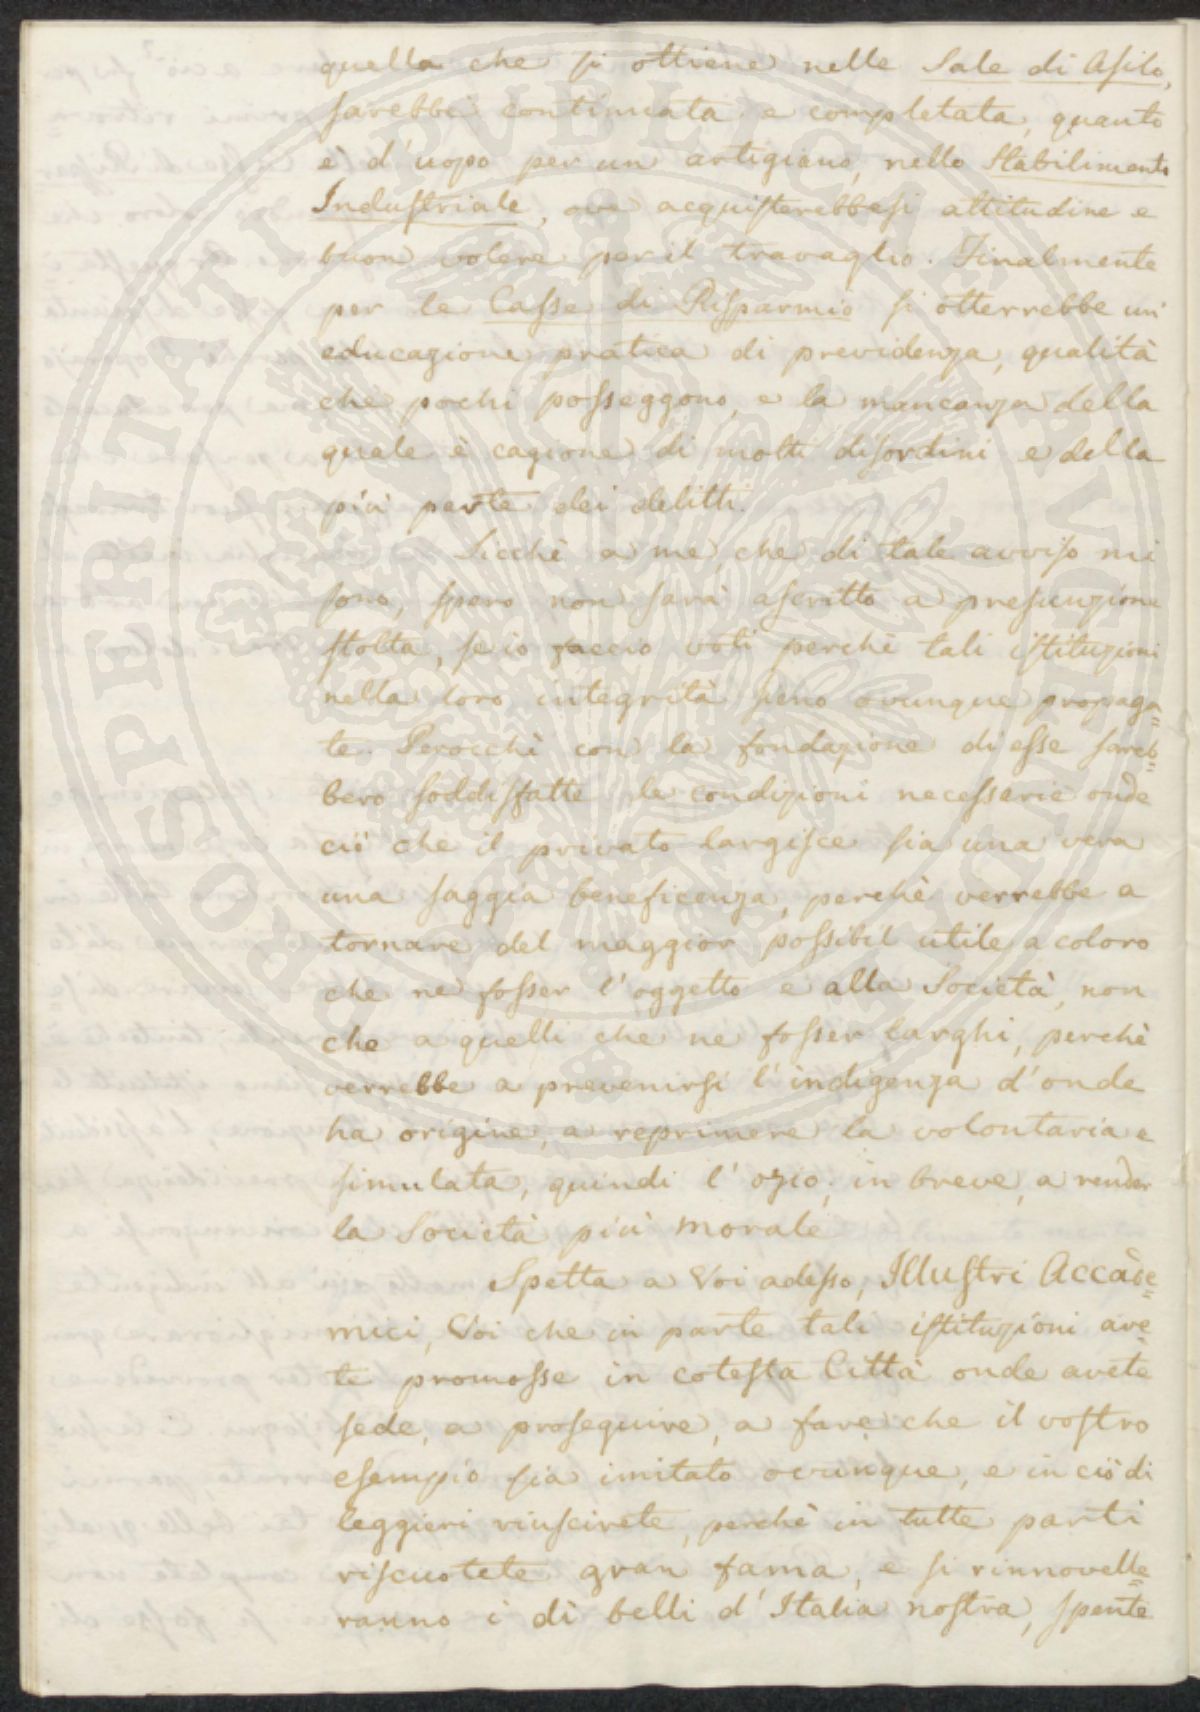 quella che si ottiene nelle Sale di Asilo,
sarebbe continuata e completata, quanto
è d'uopo per un artigiano, nello Stabilimento
Industriale, ove acquisterebbesi attitudine e
buon volere per il travaglio. Finalmente
per le Casse di Risparmio si otterrebbe un'
educazione pratica di previdenza, qualità
che pochi posseggono, e la mancanza della
quale è cagione di molti disordini e della
più parte dei delitti.
Sicchè a me, che di tale avviso mi
sono, spero non sarà ascritto a presunzione
stolta, se io faccio voti perchè tali istituzioni
nella loro integrità sieno ovunque propaga=
te. Perocchè con la fondazione di esse sareb=
bero soddisfatte le condizioni necessarie onde
ciò che il privato largisce sia una vera
una saggia beneficenza, perchè verrebbe a
tornare del maggior possibil utile a coloro
che ne fosser l'oggetto e alla Società, non
che a quelli che ne fosser larghi, perchè
verrebbe a prevenirsi l'indigenza d'onde
ha origine, a reprimere la volontaria e
simulata, quindi l'ozio; in breve, a render
la Società più morale
Spetta a Voi adesso, Illustri Accade=
mici, Voi che in parte tali istituzioni ave=
te promosse in cotesta Città onde avete
sede, a proseguire, a fare che il vostro
esempio sia imitato ovunque, e in ciò di
leggieri riuscirete, perchè in tutte parti
riscuotete gran fama, e si rinnovelle=
ranno i dì belli d'Italia nostra, spente
PROSPERITATI PVBLICAE AVGENDAE